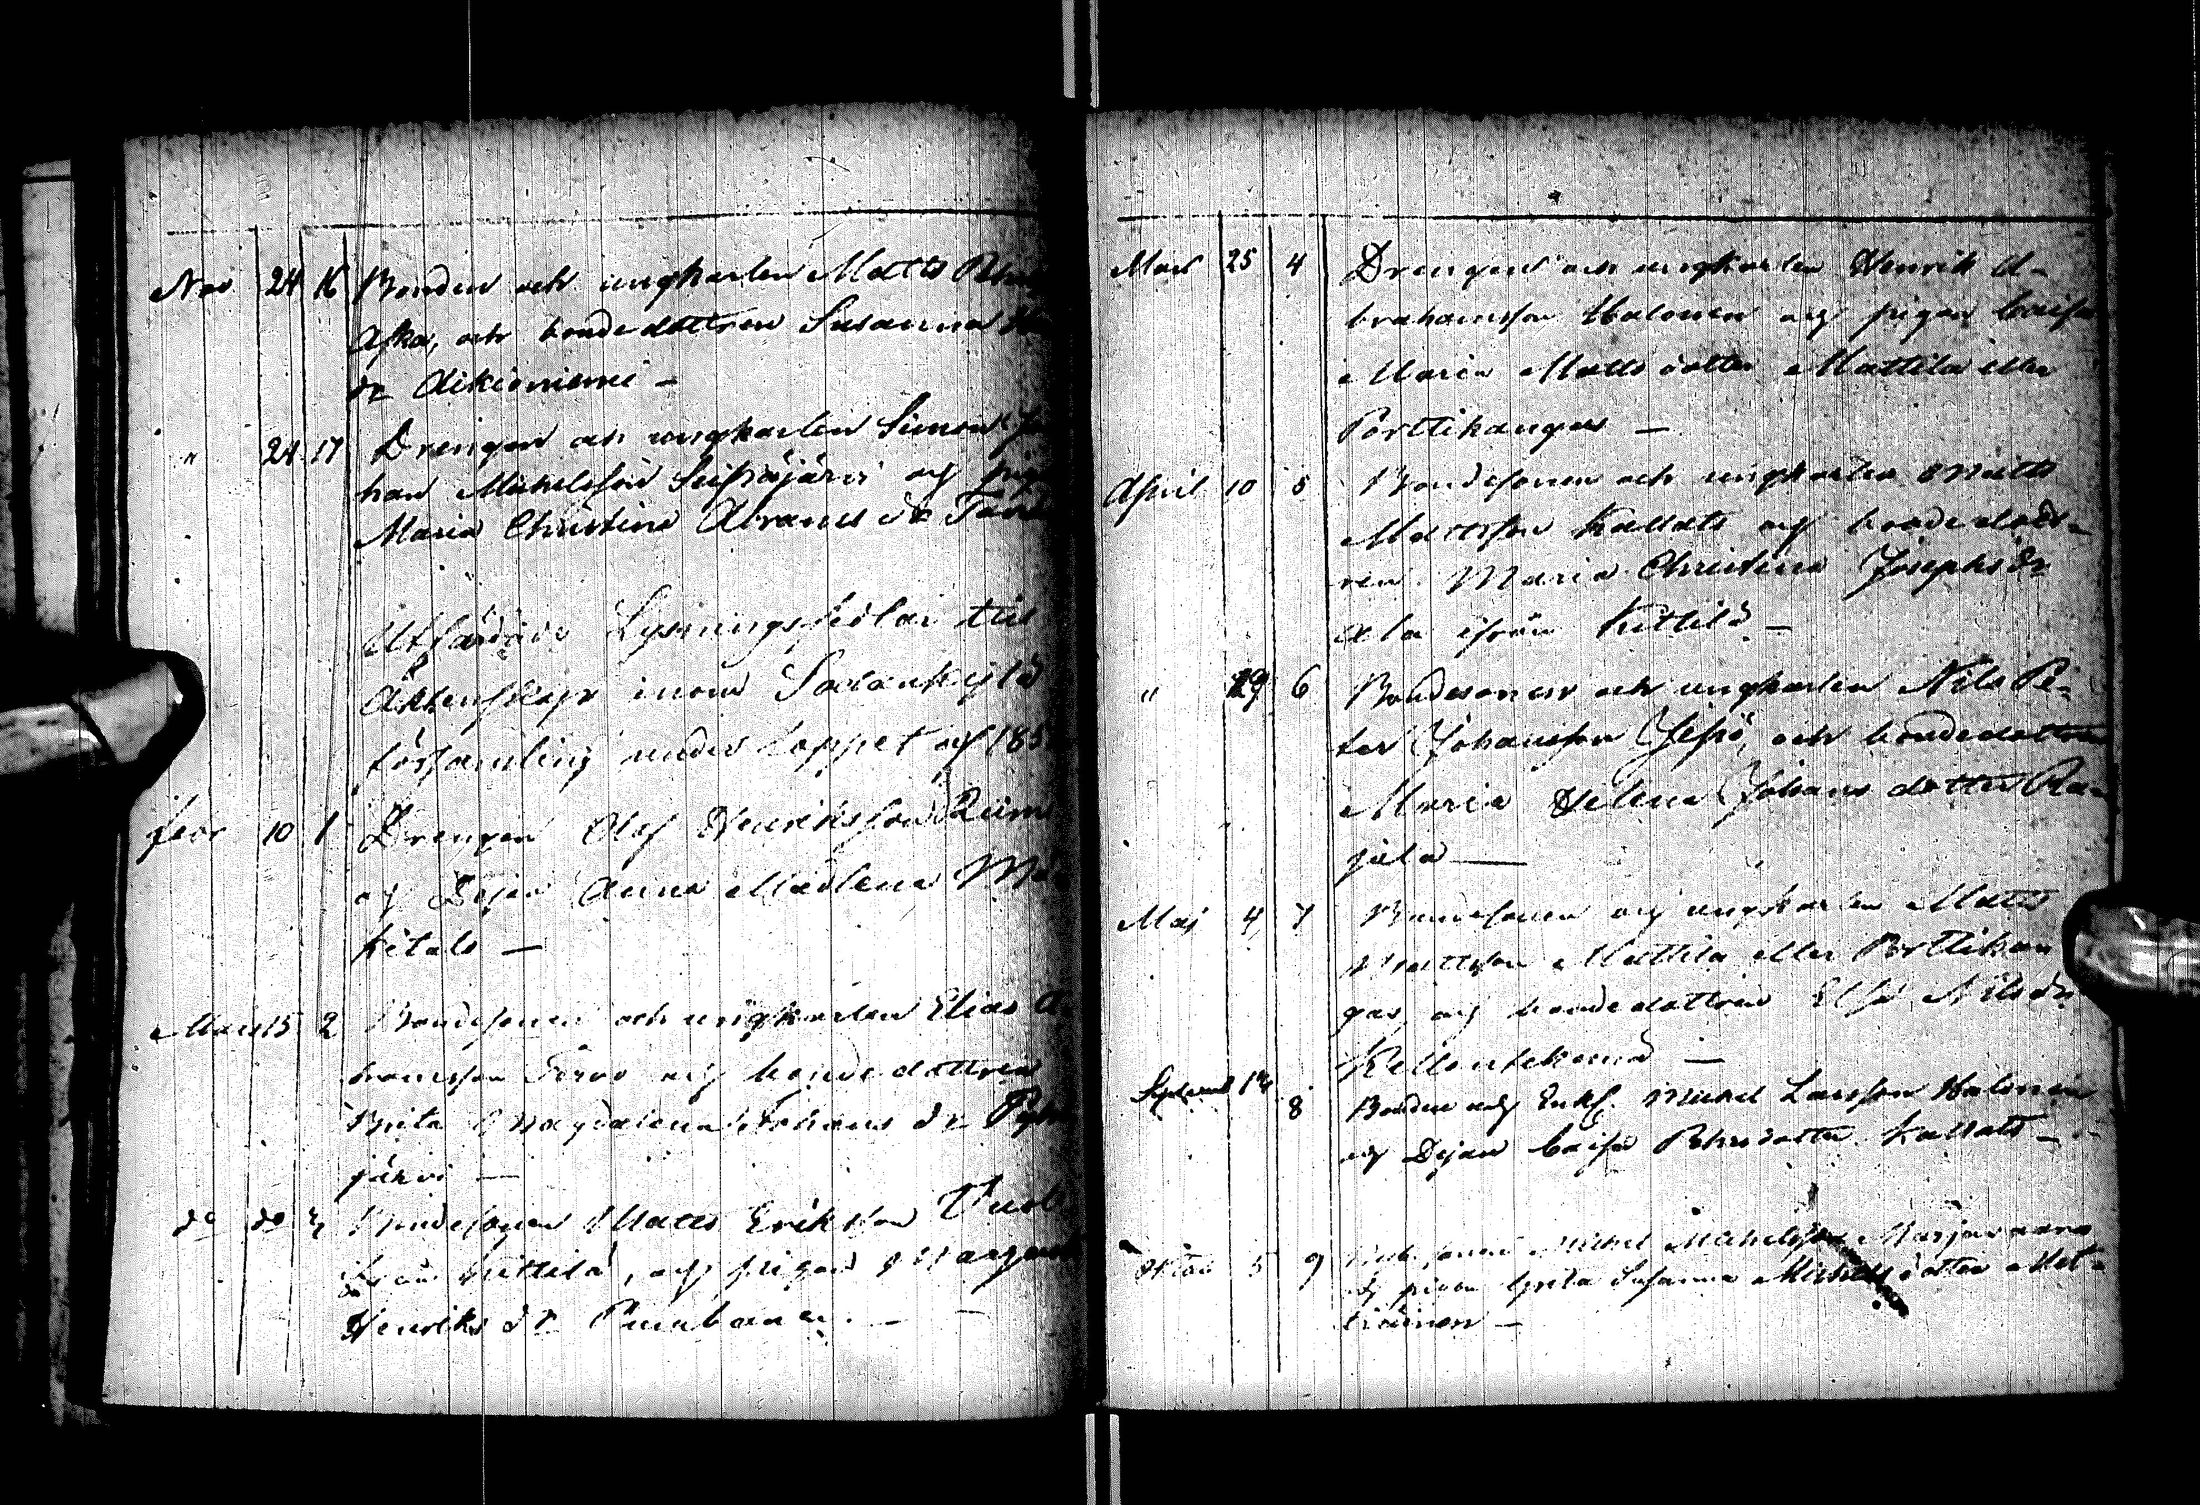 Nov 24 16 Bonden och ungkarlen Matts
Aska, och bondedottren Susanna
dr Aikioniemi –
" 24 17 Drengen och ungkarlen Simon
han Michelsson Seipäjärvi och
Maria Christina Abrams dr
Utfärdade Lysningssedlar till
Äktenskap inom Sodankylä
församling under loppet af 185
Febr 10 1 Drengen Olof Henriksson
och Dejan Anna Madlena
kitalo –
Mars 15 2 Bondesonen och ungkarlen Elias A-
bramsson och bondedottren
Brita Magdalena Johans dr
järvi –
do do 3 Bondesonen Matts Eriksson
från Kittilä, och pigan
Henriks dr –
Mars 25 4 Drengen och ungkarlen Henrik A-
brahamsson Halonen och pigan Caisa
Maria Matts dotter Mattila eller
Porttikangas –
April 10 5 Bondesonen och ungkarlen Matts
Mattsson Kallats och bondedott-
ren Maria Christina Josephs dr
Ala ifrån Kittilä –
" 29 6 Bondesonen och ungkarlen Nils Pe-
ter Johansson Jesiö, och bondedottren
Maria Helena Johans dotter Ra-
jala –
Maj 4 7 Bondesonen och ungkarlen Matts
Mattsson Mattila eller Porttikan
gas och bondedottren Elsa Nils dr
Kellontekemä –
Septemb 14 8 Bonden och Enkl. Michel Larsson Halonen
och Dejan Caisa Pehrs dotter Kallats –
5 9 Michel Michelsson Marjavaara
och pigan Greta Susanna Michels dotter Met-